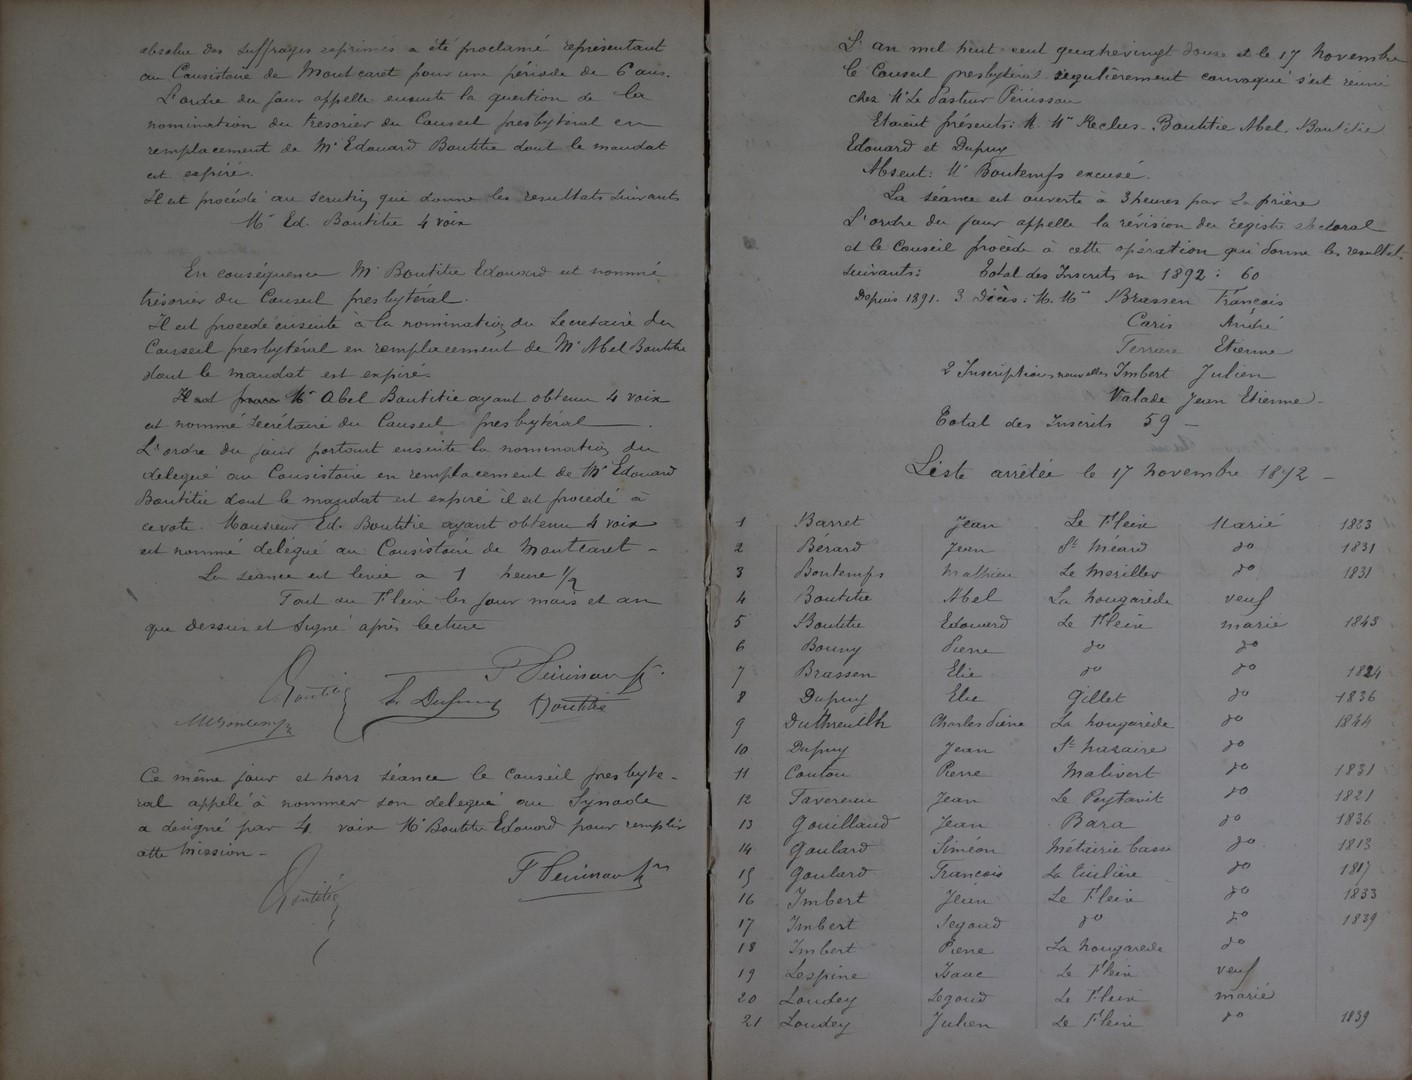 absolue des suffrages exprimés a été proclamé représentant
au Consistoire de Montcaret pour une période de 6 ans.
L'ordre du jour appelle ensuite la question de la
nomination du tresorier du Conseil presbytéral en
remplacement de Mr Edouard Boutitie dont le mandat
est expiré.
Il est procédé au scrutin qui donne les resultats suivants
Mr Ed. Boutitie 4 voix
En conséquence Mr Boutitie Edouard est nommé
trésorier du Conseil presbytéral.
Il est procedé ensuite à la nomination du Secretaire du
Conseil presbytéral en remplacement de Mr Abel Boutitie
dont le mandat est expiré.
Mr Abel Boutitie ayant obtenu 4 voix
est nommé Secrétaire du Conseil presbytéral.
L'ordre du jour portant ensuite la nomination du
delegué au Consistoire en remplacement de Mr Edouard
Boutitie dont le mandat est expiré il est procedé à
ce vote. Monsieur Ed. Boutitie ayant obtenu 4 voix
est nommé delegué au Consistoire de Montcaret -
La séance est levée a 1 heure 1/2
Fait au Fleix les jour mois et an
que dessus et Signé après lecture
Boutitie
Ce même jour et hors séance le Conseil presbyte-
ral appelé à nommer son delegué au Synode
a designé par 4 voix Mr Boutitie Edouard pour remplir
cette mission -
Boutitie
L'an mil huit cent quatrevingt douze et le 17 Novembre
le Conseil presbytéral régulièrement convoqué s'est réuni
chez Mr Le Pasteur Périssou
Etaient présents: M. Mrs Reclus. Boutitie Abel. Boutitie
Edouard et Dupuy
Absent: Mr Bontemps excusé.
La séance est ouverte à 3 heures par la prière
L'ordre du jour appelle la révision du registre electoral
et le Conseil procède à cette opération qui donne les resultats
suivants: Total des Inscrits en 1892 : 60
Depuis 1891. 3 Décès: M. Mrs Brassen François
Caris André
Etienne
2 Inscriptions nouvelles Imbert Julien
Valade Jean Etienne -
Total des Inscrits 59 -
Liste arrêtée le 17 Novembre 1892 -
1 Barret Jean Le Fleix Marié 1823
2 Bérard Jean St Méard do 1831
3 Bontemps Mathieu Le Merillier do 1831
4 Boutitie Abel La Nougarède veuf
5 Boutitie Edouard Le Fleix marié 1843
6 Bouny Pierre do do
7 Brassen Elie do do 1824
8 Dupuy Elie Gillet do 1836
9 Duthreuilh Charles La Nougarède do 1844
10 Dupuy Jean St Nasaire do
11 Coutou Pierre Malivert do 1831
12 Jean Le Peytavit do 1821
13 Gouilland Jean Bara do 1836
14 Goulard Siméon Métairie basse do 1813
15 Goulard François La Tuilière do 1817
16 Imbert Jean Le Fleix do 1833
17 Imbert Segoud do do 1839
18 Imbert Pierre La Nougarede do
19 Lespine Isaac Le Fleix veuf
20 Loudey Segoud Le Fleix marié
21 Loudey Julien Le Fleix do 1839